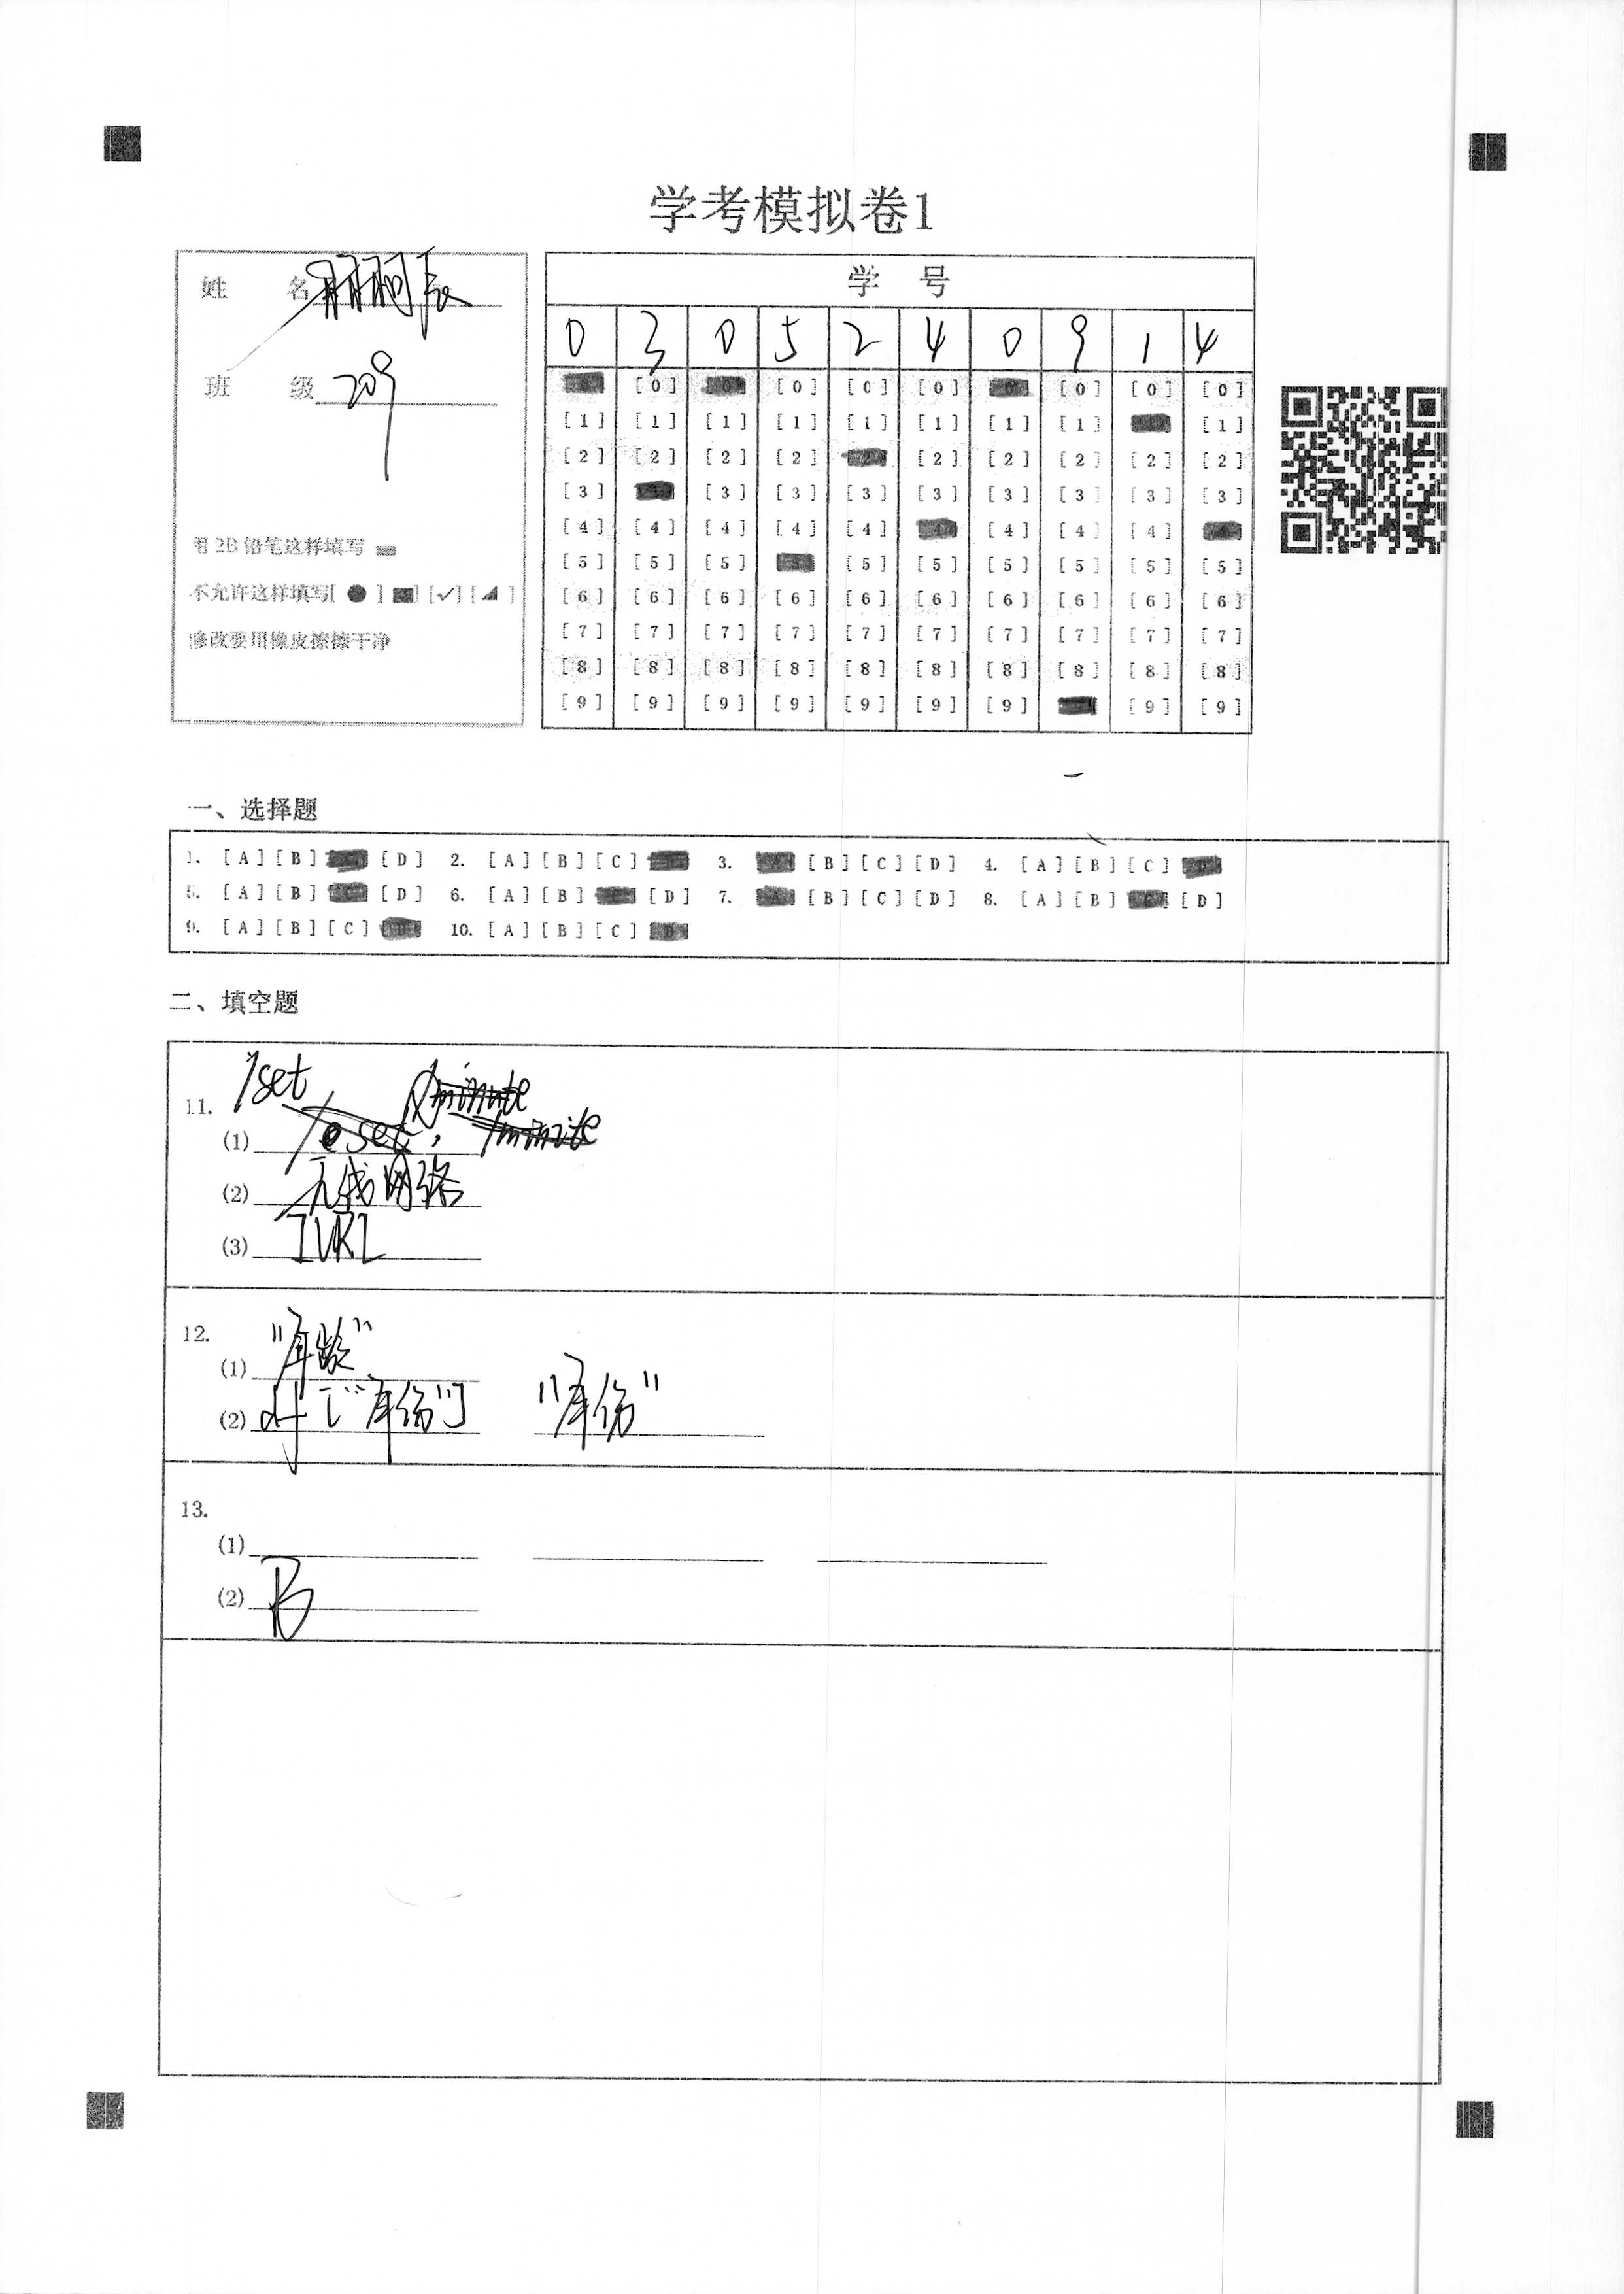 学考模拟卷1
姓 名
班 级 209
用 2B 铅笔这样填写
不允许这样填写[ ● ] [✓] [ ]
修改要用橡皮擦擦干净
学 号
0 3 0 5 2 4 0 9 1 4
[0] [0] [0] [0] [0] [0] [0]
[1] [1] [1] [1] [1] [1] [1] [1] [1]
[2] [2] [2] [2] [2] [2] [2] [2] [2]
[3] [3] [3] [3] [3] [3] [3] [3] [3]
[4] [4] [4] [4] [4] [4] [4] [4]
[5] [5] [5] [5] [5] [5] [5] [5] [5]
[6] [6] [6] [6] [6] [6] [6] [6] [6] [6]
[7] [7] [7] [7] [7] [7] [7] [7] [7] [7]
[8] [8] [8] [8] [8] [8] [8] [8] [8] [8]
[9] [9] [9] [9] [9] [9] [9] [9] [9]
一、选择题
1. [A] [B] [D] 2. [A] [B] [C] 3. [B] [C] [D] 4. [A] [B] [C]
5. [A] [B] [D] 6. [A] [B] [D] 7. [A] [B] [C] [D] 8. [A] [B] [D]
9. [A] [B] [C] [D] 10. [A] [B] [C] [D]
二、填空题
11. /set
(1)
(2) 无线网络
(3) IURL
12.
(1) "年龄"
(2) df["年份"] "年份"
13.
(1)
(2) B